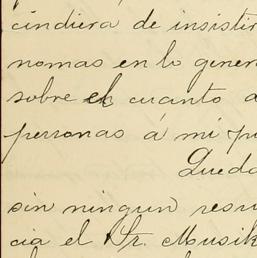 cindiera de insistir
nomas en lo gener
sobre el cuanto a
personas á mi pu
Queda
sin ningun resu
cia el Sr. Musik